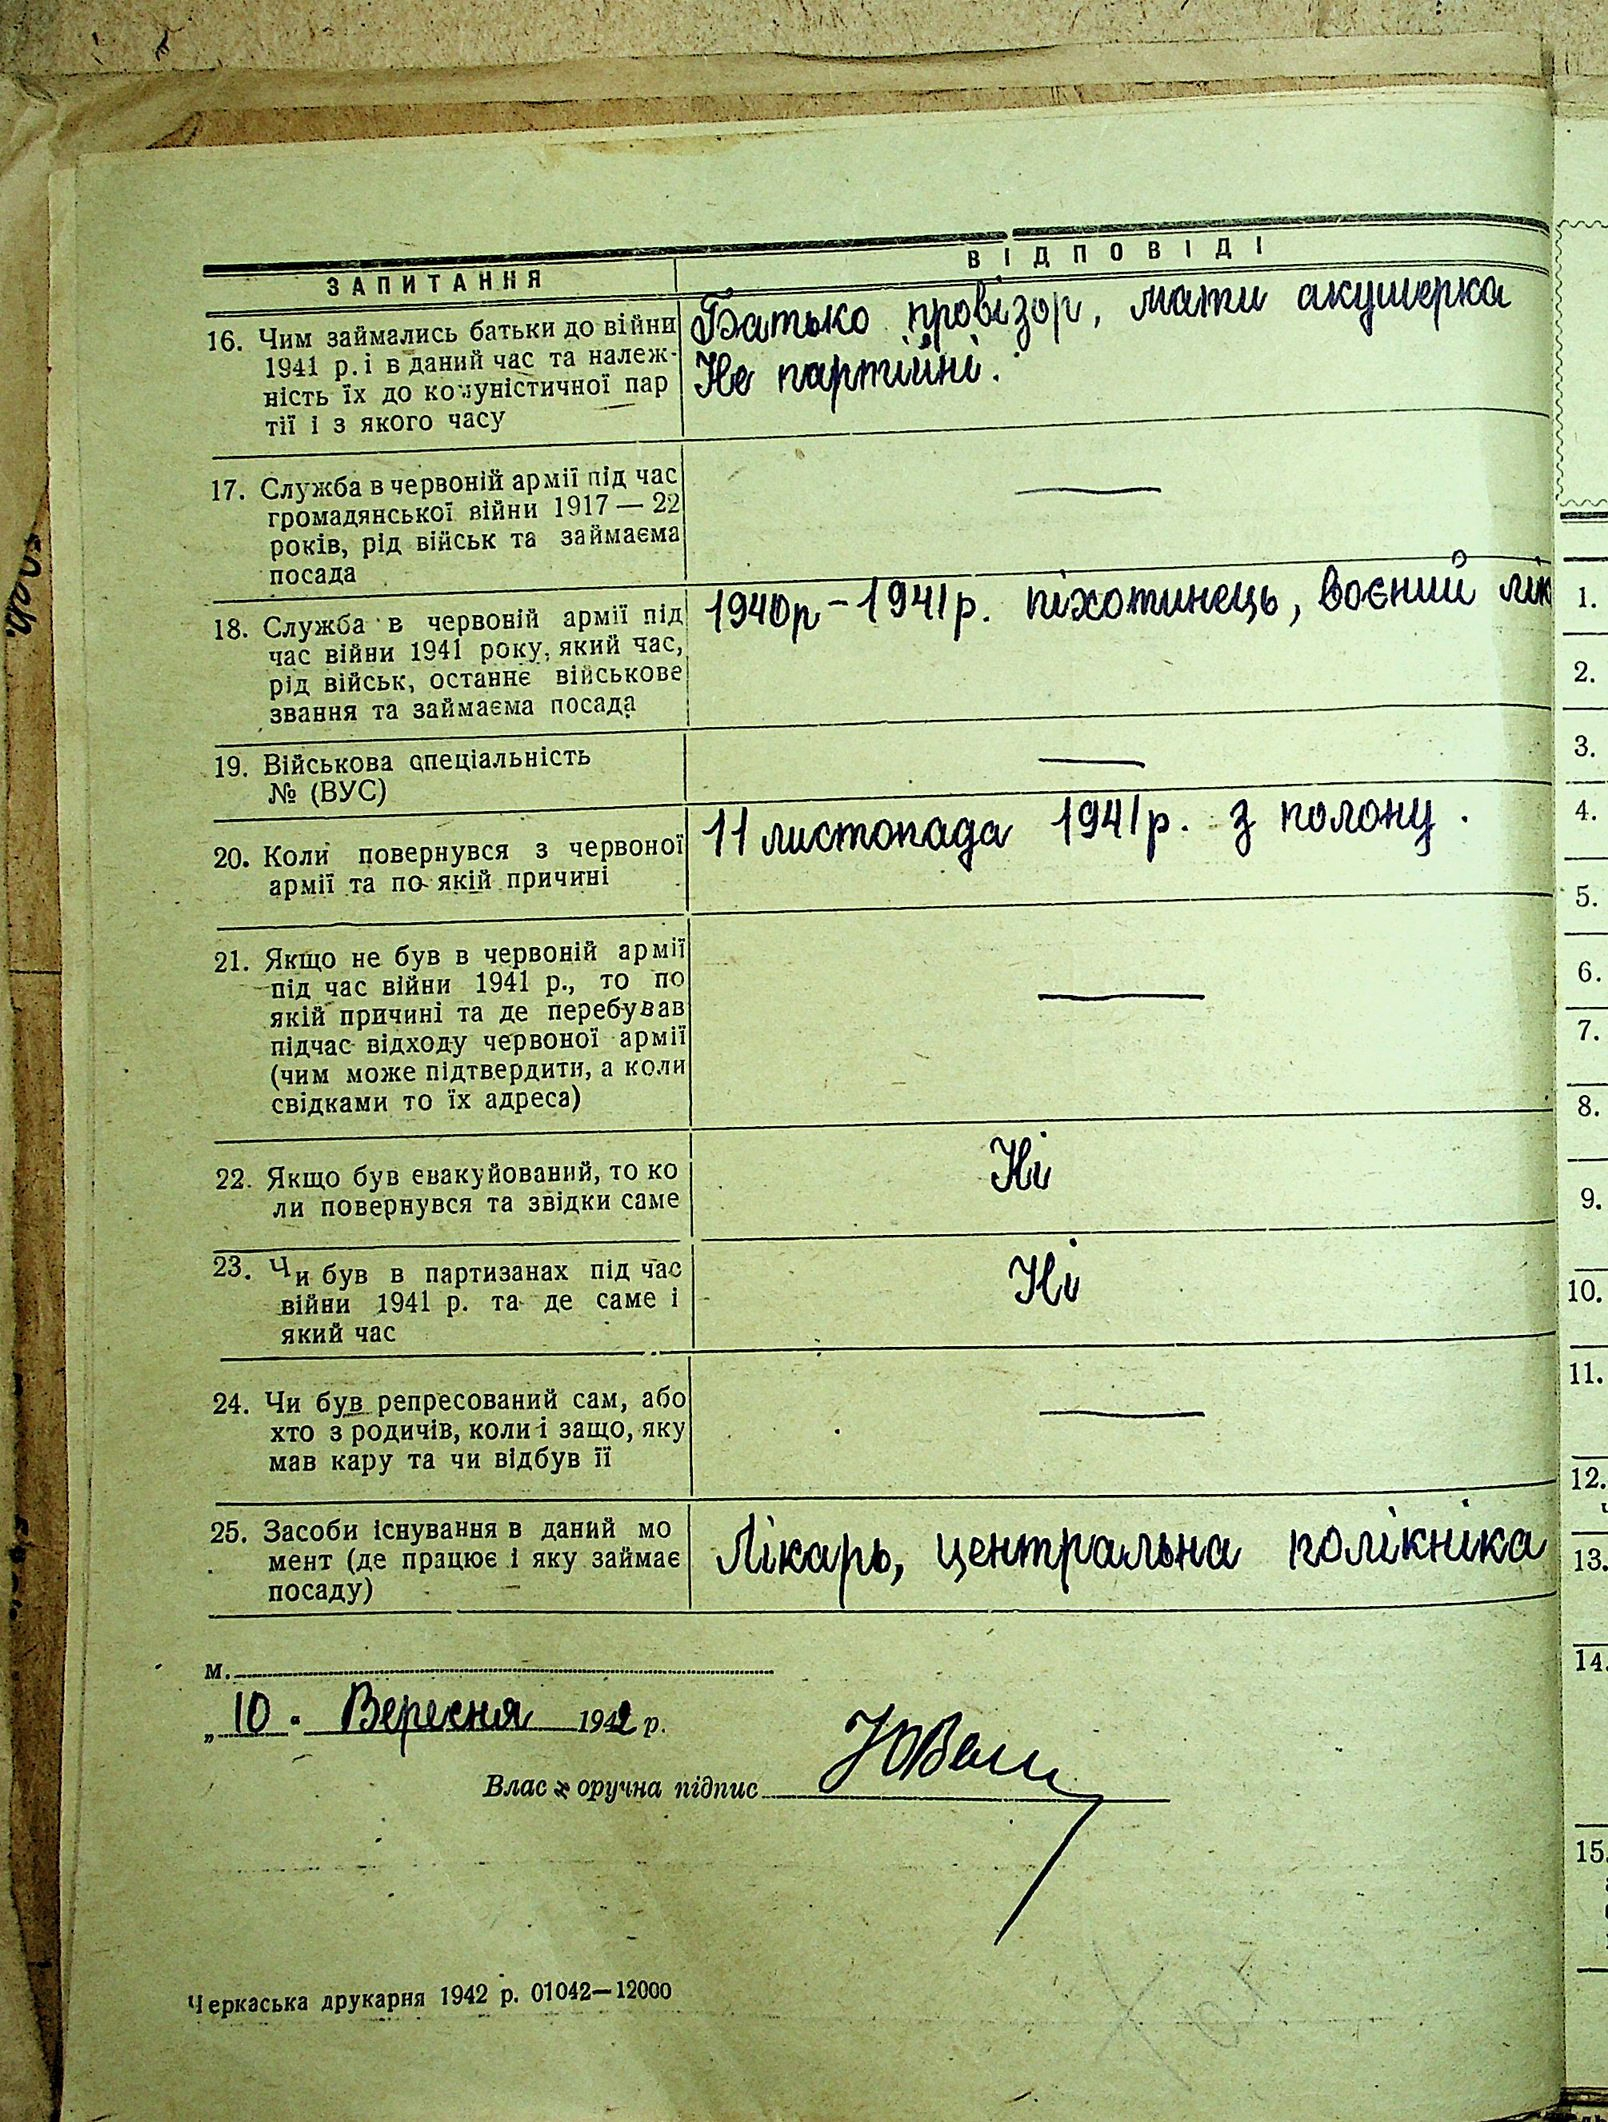 ЗАПИТАННЯ
ВІДПОВІДІ
16. Чим займались батьки до війни
1941 р. і в даний час та належ-
ність їх до комуністичної пар
тії і з якого часу
Батько провізор, мати акушерка
Не партійні.
17. Служба в червоній армії під час
громадянської війни 1917 — 22
років, рід військ та займаєма
посада
—
18. Служба в червоній армії під
час війни 1941 року, який час,
рід військ, останнє військове
звання та займаєма посада
1940р – 1941р. піхотинець, воєний лік
19. Військова спеціальність
№ (ВУС)
—
20. Коли повернувся з червоної
армії та по якій причині
11 листопада 1941р. з полону.
21. Якщо не був в червоній армії
під час війни 1941 р., то по
якій причині та де перебував
підчас відходу червоної армії
(чим може підтвердити, а коли
свідками то їх адреса)
—
22. Якщо був евакуйований, то ко
ли повернувся та звідки саме
Ні
23. Чи був в партизанах під час
війни 1941 р. та де саме і
який час
Ні
24. Чи був репресований сам, або
хто з родичів, коли і защо, яку
мав кару та чи відбув її
—
25. Засоби існування в даний мо
мент (де працює і яку займає
посаду)
Лікарь, центральна полікніка
м.
„10" Вересня 1942 р.
Власноручна підпис
Черкаська друкарня 1942 р. 01042—12000
1.
2.
3.
4.
5.
6.
7.
8.
9.
10.
11.
12.
13.
14.
15.